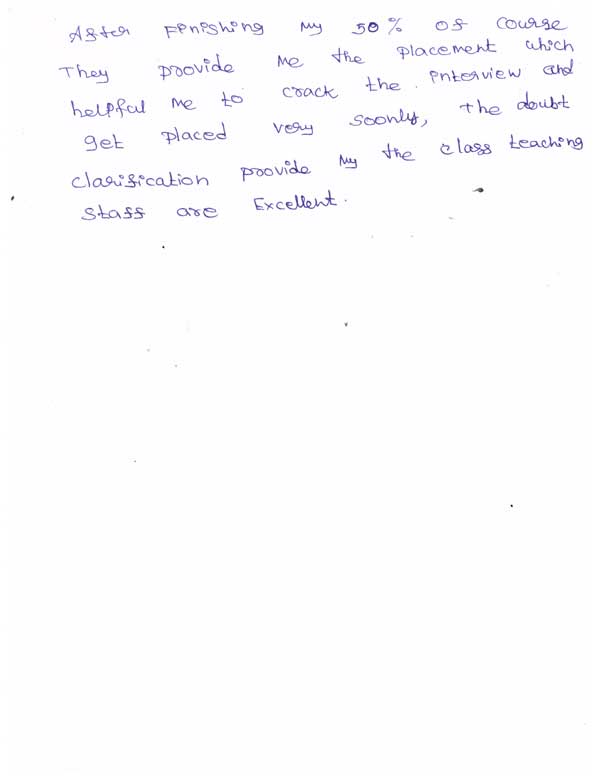 After Finishing my 50% of course
They provide me the placement which
helpful me to crack the interview and
get placed very soonly, the doubt
clarification provide my the class teaching
staff are Excellent.